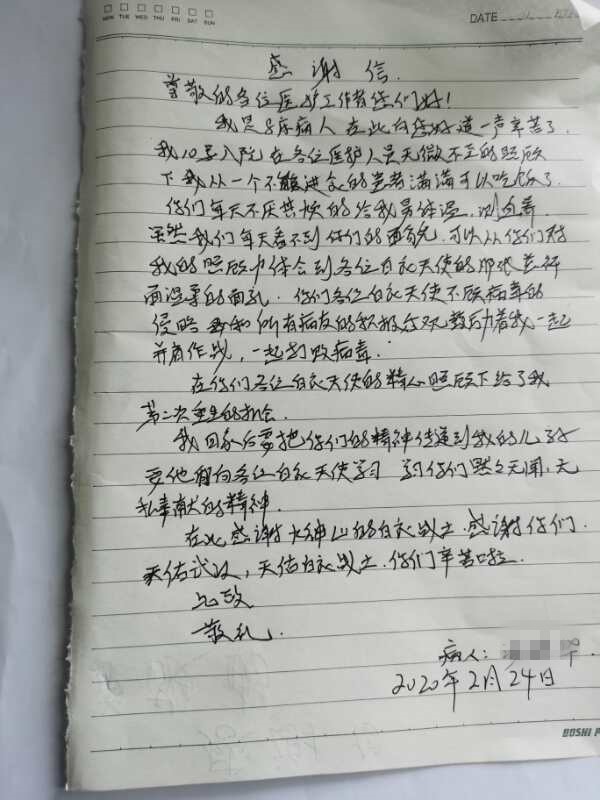 MON TUE WED THU FRI SAT SUN
DATE
感谢信.
尊敬的各位医护工作者您们好!
我是8床病人 在此向您们道一声辛苦了.
我10号入院 在各位医护人员无微不至的照顾
下 我从一个不能进食的患者满满可以吃饭了.
你们每天不厌其烦的给我量体温,测血氧
虽然我们每天看不到你们的面貌,可以从你们对
我的照顾中体会到各位白衣天使的那张慈祥
而温柔的面孔.你们各位白衣天使不顾病毒的
侵略 我和所有病友的积极乐观 鼓励着我一起
并肩作战,一起打败病毒.
在你们各位白衣天使的精心照顾下给了我
第二次重生的机会.
我回家后要把你们的精神传递到我的儿孙
要他们向各位白衣天使学习 学习你们默々无闻,无
私奉献的精神.
在此感谢火神山的白衣战士.感谢你们.
天佑武汉,天佑白衣战士.你们辛苦啦.
此致
敬礼.
病人:
2020年2月24日
BOSHI